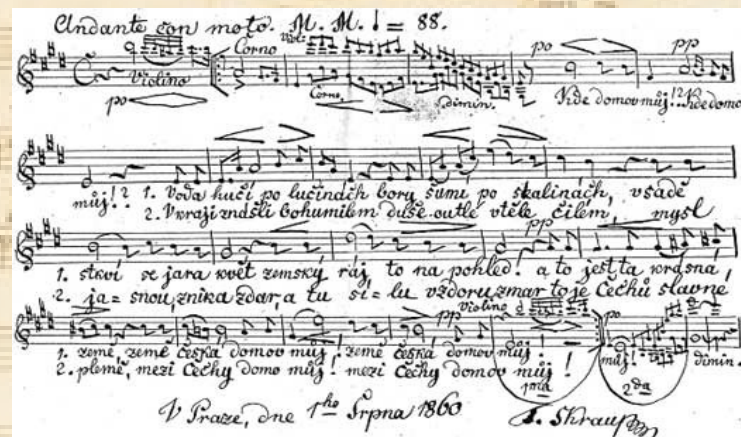 Andante con moto. M. M. ♩ = 88.
Viol: Corno
Violino po Corno dimin. po pp
Kde domov můj!? Kde domo
můj!? 1. Voda hučí po lučinách bory šumí po skalinách, v sadě
2. V kraji znášli bohumilém duše outlé v těle čilém, mysl
pp
1. skví se jara květ zemský ráj to na pohled! a to jest ta krásná,
2. ja=snou, znika zdar, a tu sí=lu vzdoru zmar to je Čechů slavné
pp Violino po
1. země, země česká domov můj, země česká domov můj!
2. plémě, mezi Čechy domo můj! mezi Čechy domov můj!
můj! dimin.
1ma 2da
V Praze, dne 1ho Srpna 1860 F. Skraup